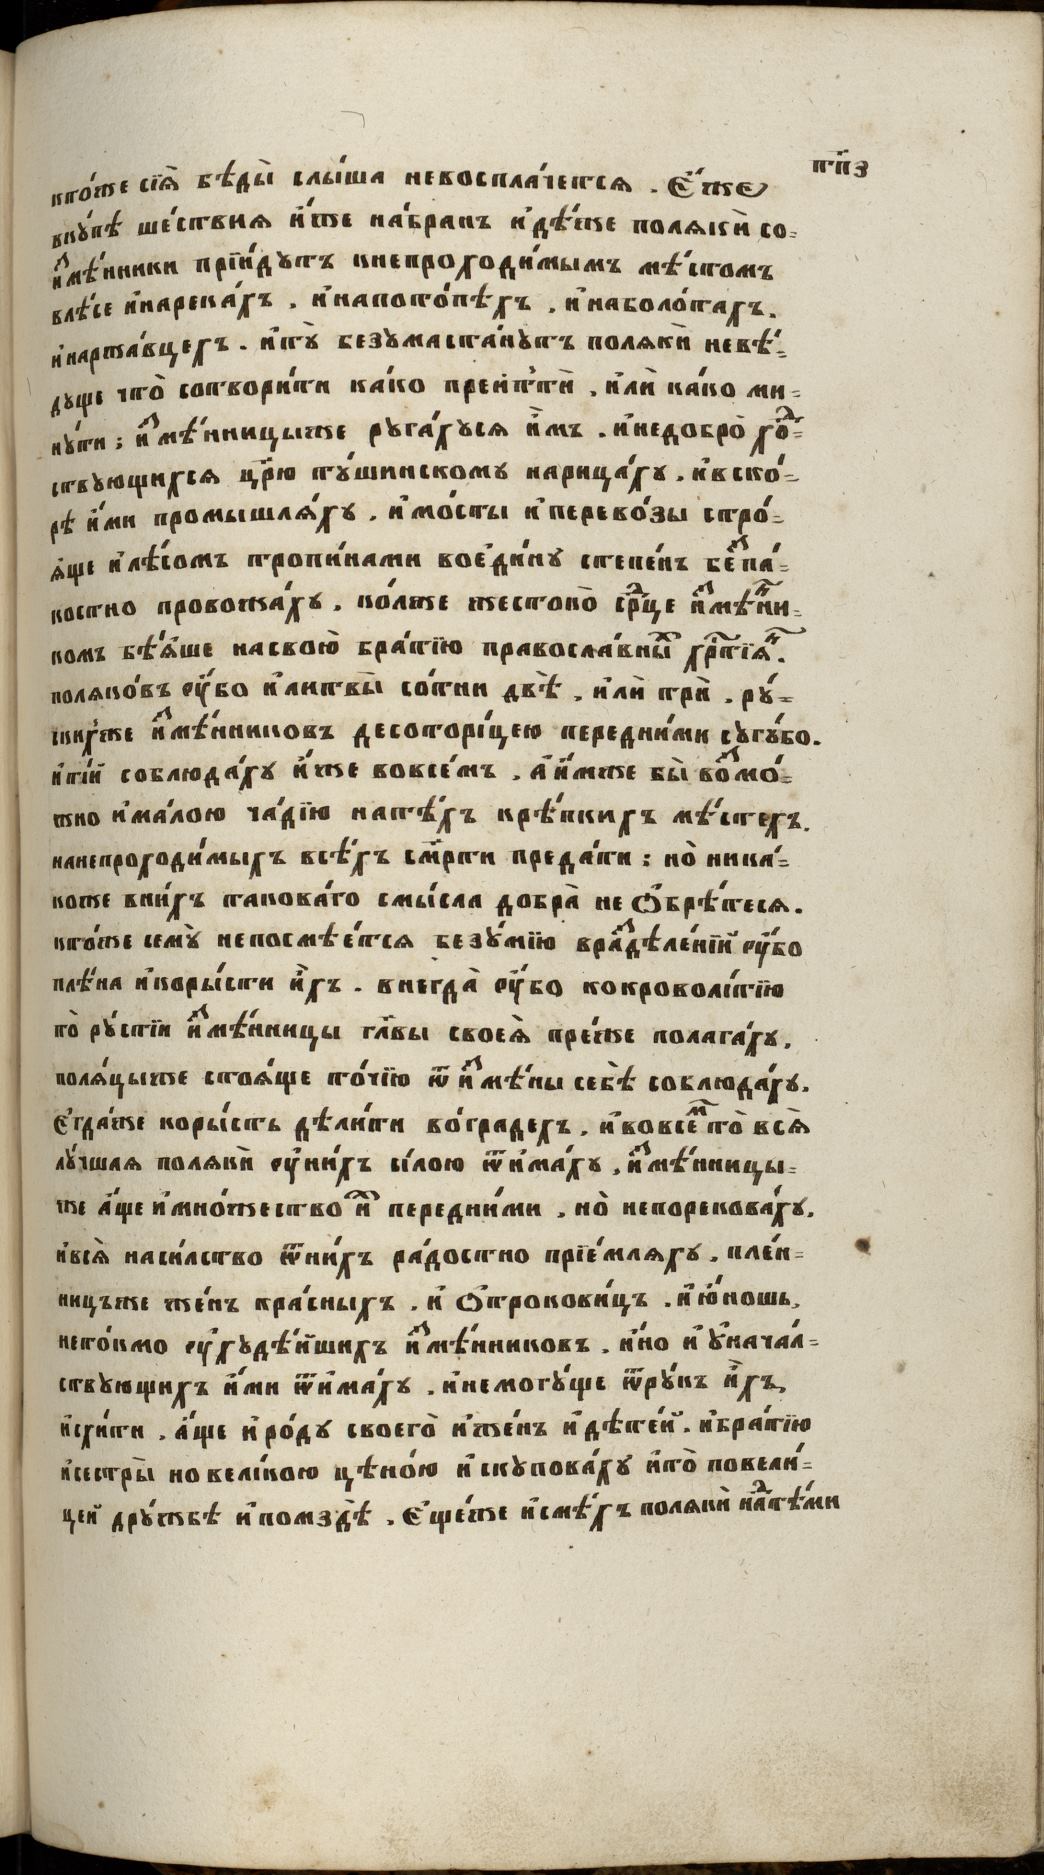 п҃з
кто́же сїѧ̀ бѣды̀ слы́ша невосплачетсѧ . Е҆́же
вкꙋ́пѣ ше́ствиѧ и҆́же на́бранъ и҆дѣ́же полѧкѝ со
и҆змѣ́нники прїи́дꙋтъ кнепроходи́мымъ мѣ́стомъ
влѣ́се и҆нарека́хъ . и҆напото́пѣхъ . и҆наболо́тахъ .
и҆наржа́вцехъ . и҆тꙋ̀ безꙋмаста́нꙋтъ полѧкѝ невѣ́=
дꙋще что̀ сотвори́ти ка́ко преити̑ . и҆лѝ ка́ко ми=
нꙋ́ти ; и҆змѣ́нницыже рꙋга́хꙋсѧ и҆̀мъ . и҆недобро̀ хо́д=
ствꙋющихсѧ цр҃ю тꙋ́шинскомꙋ нарица́хꙋ . и҆вско́=
рѣ и҆́ми промышлѧ́хꙋ . и҆мо́сты и҆перево́зы стро́=
ѧще и҆лѣ́сомъ тропи́нами воеди́нꙋ степе́нъ беспа́=
костно провожа́хꙋ . ко́лже жестоко̀ ср҃дце и҆змѣ́нни=
комъ бѣ́ѧше насвою̀ бра́тїю правосла́вных хрⷭ҇тїѧн .
полѧко́въ ᲂу҆́бо и҆литвы̀ со́тни двѣ̀ . и҆лѝ трѝ . рꙋ́=
скихже и҆змѣ́нниковъ десоторі́цею передни́ми сꙋгꙋ́бо .
и҆ті́й соблюда́хꙋ и҆́же вовсе́мъ . а҆и҆́мже бы̀ возмо́=
жно и҆ма́лою ча́дїю натѣ́хъ крѣ́пкихъ мѣ́стехъ .
нанепроходи́мыхъ всѣ́хъ см҃рти преда́ти ; но̀ ника́=
коже вни́хъ такова́го смы́сла добра̀ не ѡ҆брѣ́тесѧ .
кто́же семꙋ̀ непосмѣе́тсѧ безꙋ́мїю враздѣле́нїй ᲂу҆́бо
плѣ́на и҆коры́сти и҆̀хъ . внегда̀ ᲂу҆́бо кокроволі́тїю
то̀ рꙋ́стїи и҆змѣ́нницы гл҃вы своеѧ̀ пре́же полага́хꙋ .
полѧ́цыже стоѧ́ще то́чїю ѿ и҆змѣ́ны себѐ соблюда́хꙋ .
Егда́же коры́сть дѣли́ти во́градехъ . и҆вовсем то̀ всѧ̀
лꙋ́чшаѧ полѧкѝ ᲂу҆ни́хъ сі́лою ѿима́хꙋ . и҆змѣ́нницы=
же а҆́ще и҆мно́жество и҆х передни́ми . но̀ непорекова́хꙋ .
и҆всѧ̀ наси́лство ѿни́хъ ра́достно прїе́млѧхꙋ . пле́н=
ницъже же́нъ кра́сныхъ . и҆ ѻ҆трокови́цъ . и҆ю́ношь .
нето́кмо ᲂу҆хꙋдѣ́йшихъ и҆змѣ́нниковъ . и҆́но и҆ ᲂу҆нача́л=
ствꙋющихъ и҆́ми ѿима́хꙋ . и҆немогꙋ́ще ѿрꙋ́къ и҆̀хъ
и҆схи́ти . а҆́ще и҆ро́дꙋ своего̀ и҆же́нъ и҆дѣте́й . и҆бра́тїю
и҆сестры̀ но вели́кою цѣно́ю и҆скꙋпова́хꙋ и҆то̀ повели́=
цей дрꙋ́жбѣ и҆помздѣ̀ . Е҆ще́же и҆смѣ́хъ полѧкѝ надтѣ́ми